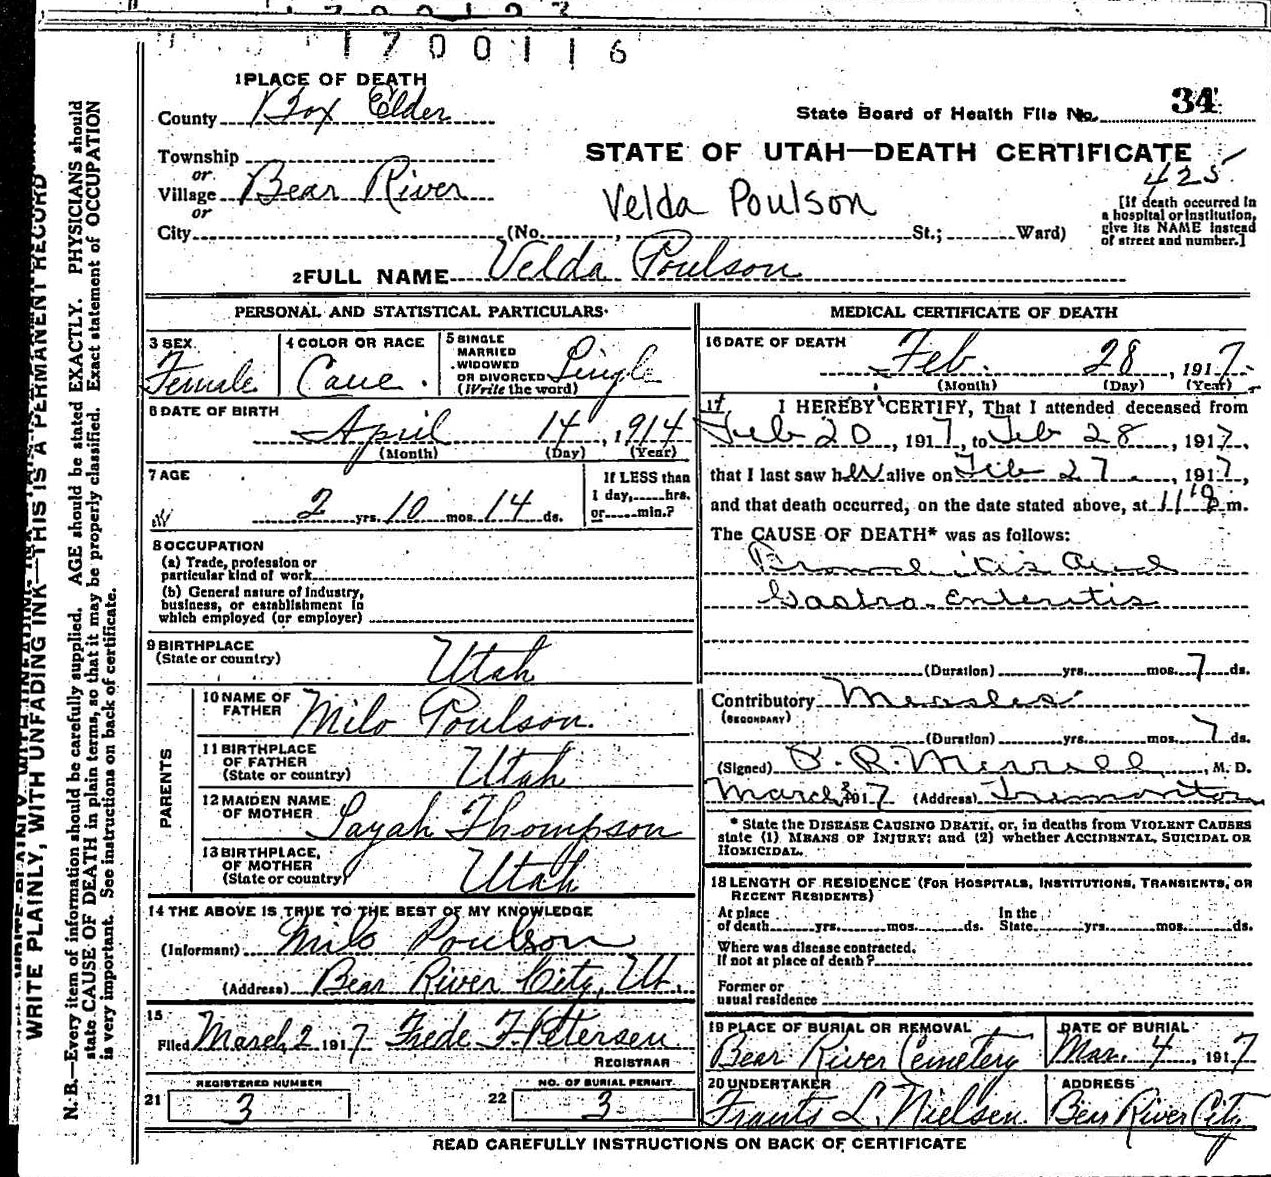 1700116
1 PLACE OF DEATH
County Box Elder
State Board of Health File No. 34
Township
or
Village Bear River
or
City (No. , St.; Ward)
STATE OF UTAH—DEATH CERTIFICATE
425
Velda Poulson
[If death occurred in
a hospital or institution,
give its NAME instead
of street and number.]
2 FULL NAME Velda Poulson
PERSONAL AND STATISTICAL PARTICULARS
3 SEX
Female
4 COLOR OR RACE
Cauc.
5 SINGLE
MARRIED
WIDOWED
OR DIVORCED
(Write the word)
Single
6 DATE OF BIRTH
April 14, 1914
(Month) (Day) (Year)
7 AGE
2 yrs. 10 mos. 14 ds.
If LESS than
1 day, hrs.
or min.?
8 OCCUPATION
(a) Trade, profession or
particular kind of work
(b) General nature of industry,
business, or establishment in
which employed (or employer)
9 BIRTHPLACE
(State or country)
Utah
PARENTS
10 NAME OF
FATHER
Milo Poulson.
11 BIRTHPLACE
OF FATHER
(State or country)
Utah
12 MAIDEN NAME
OF MOTHER
Sarah Thompson
13 BIRTHPLACE,
OF MOTHER
(State or country)
Utah
14 THE ABOVE IS TRUE TO THE BEST OF MY KNOWLEDGE
(Informant) Milo Poulson
(Address) Bear River City, Ut.
15
Filed March 2 1917 Frede F. Petersen
REGISTRAR
21 REGISTERED NUMBER
3
22 NO. OF BURIAL PERMIT
3
MEDICAL CERTIFICATE OF DEATH
16 DATE OF DEATH
Feb. 28, 1917
(Month) (Day) (Year)
17 I HEREBY CERTIFY, That I attended deceased from
Feb 20, 1917, to Feb 28, 1917,
that I last saw her alive on Feb 27, 1917,
and that death occurred, on the date stated above, at 11 P m.
The CAUSE OF DEATH* was as follows:
Bronchitis and
Gastro-Enteritis
(Duration) yrs. mos. 7 ds.
Contributory Measles
(SECONDARY)
(Duration) yrs. mos. 7 ds.
(Signed) R. Merrill, M. D.
March 3 1917 (Address) Tremonton
* State the DISEASE CAUSING DEATH, or, in deaths from VIOLENT CAUSES
state (1) MEANS OF INJURY; and (2) whether ACCIDENTAL, SUICIDAL OR
HOMICIDAL.
18 LENGTH OF RESIDENCE (FOR HOSPITALS, INSTITUTIONS, TRANSIENTS, OR
RECENT RESIDENTS)
At place
of death yrs. mos. ds.
In the
State yrs. mos. ds.
Where was disease contracted.
If not at place of death?
Former or
usual residence
19 PLACE OF BURIAL OR REMOVAL
Bear River Cemetery
DATE OF BURIAL
Mar. 4, 1917
20 UNDERTAKER
Frants L. Nielsen.
ADDRESS
Bear River City
READ CAREFULLY INSTRUCTIONS ON BACK OF CERTIFICATE
WRITE PLAINLY, WITH UNFADING INK—THIS IS A PERMANENT RECORD
N. B.—Every item of information should be carefully supplied. AGE should be stated EXACTLY. PHYSICIANS should
state CAUSE OF DEATH in plain terms, so that it may be properly classified. Exact statement of OCCUPATION
is very important. See instructions on back of certificate.